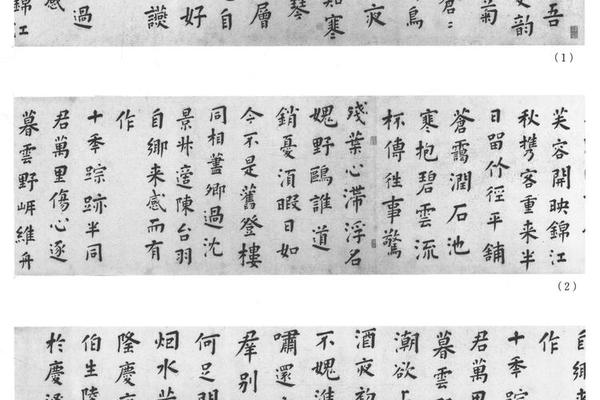 吾
韻
菊
蒼〻
鳥
夜
寒
琴
層
自
好
讌
過
感
錦江
(1)
芙容開映錦江
秋携客重来半
日留竹徑平舖
蒼靄潤石池
寒抱碧雲流
杯傳徃事驚
殘葉心滯浮名
媿野鷗誰道
銷憂須暇日如
今不是舊登樓
同相卿過沈
景邀陳台羽
自鄉来感而有
作
十季踪跡半同
君萬里傷心逐
暮雲野岍維舟
(2)
自鄉来
作
十季踪
君萬里
暮雲野
潮欲上
酒夜初
不媿淮
嘯還
羣别
何足問
烟水
隆慶
伯生陸
於慶